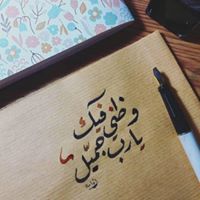 وظني فيك
يارب جميل